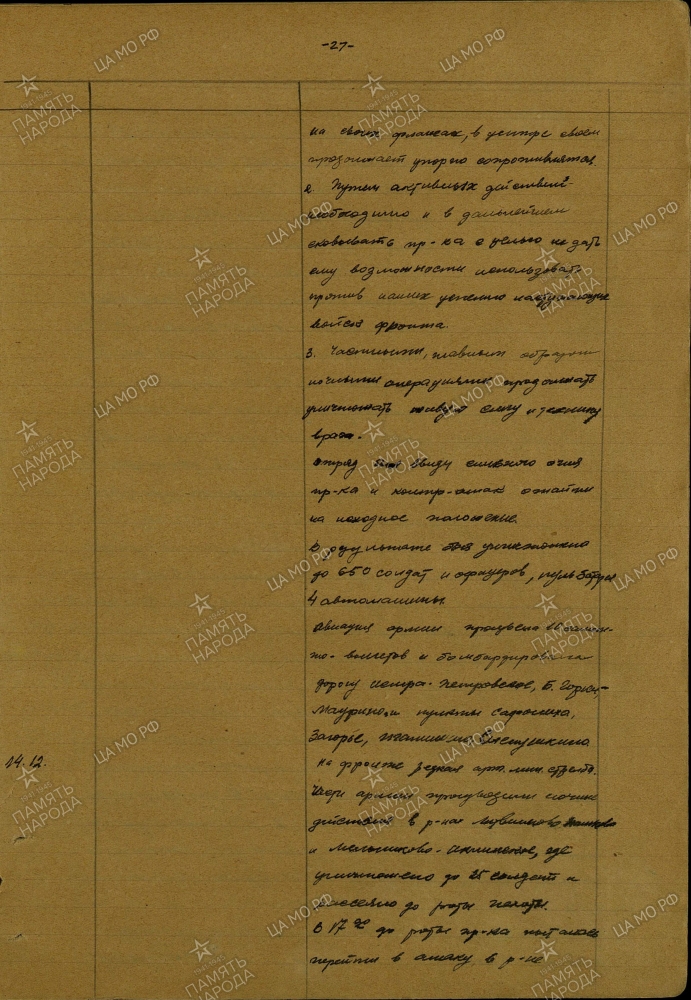 -27-
на своих флангах, в центре своем
продолжает упорно сопротивляться
2. Путем активных действий
необходимо и в дальнейшем
сковывать пр-ка с целью не дать
ему возможности использовать
против наших успешно наступающих
войск фронта.
3. Частными, главным образом
ночными операциями продолжать
уничтожать живую силу и технику
врага.
отряд ввиду сильного огня
пр-ка и контр-атак отойти
на исходное положение.
В результате уничтожено
до 650 солдат и офицеров,
4 автомашины.
Авиация армии произвела
вылетов и бомбардировала
дорогу Истра-Петровское, Б. Горки,
Маурино, и пункты
Загорье,
14.12.
На фронте редкая арт. мин. стрельба.
Части армии производили ночные
действия в р-нах
и Мельниково-, где
уничтожено до 25 солдат и
рассеяно до роты пехоты.
В 17 до роты пр-ка пыталось
перейти в атаку в р-не
ЦА МО РФ
ПАМЯТЬ
НАРОДА